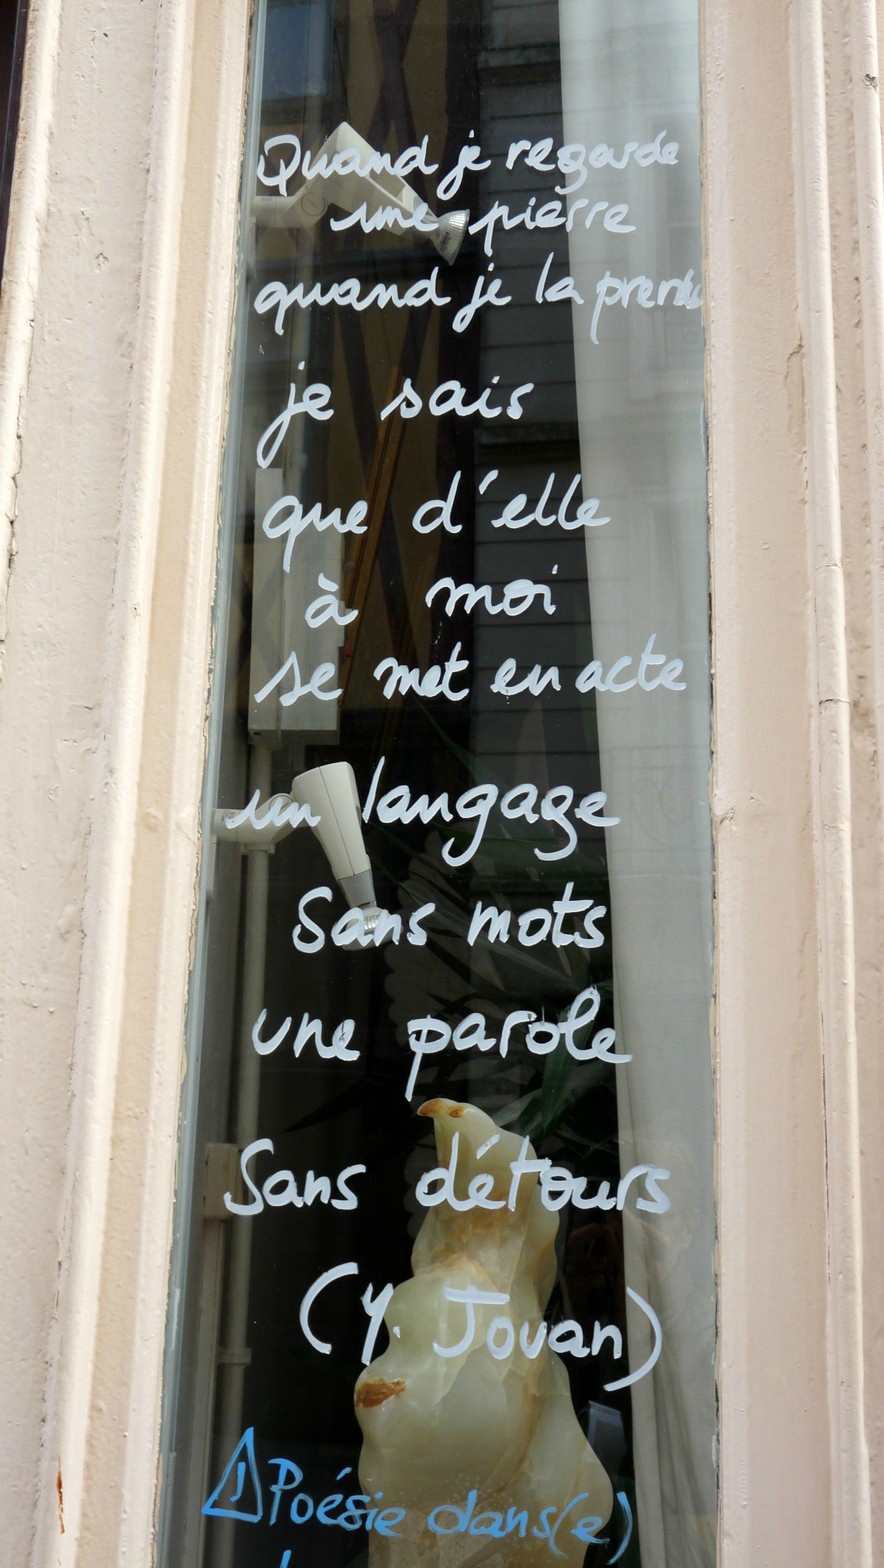 Quand je regarde
une pierre
quand je la prends
je sais
que d'elle
à moi
se met en acte
un langage
sans mots
une parole
sans détours
(Y. Jouan)
Poésie dans(e)